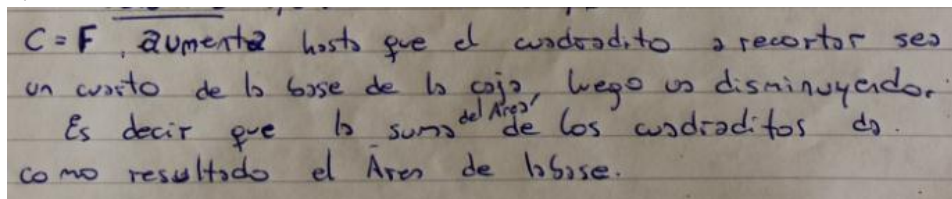 C = F, aumenta hasta que el cuadradito a recortar sea
un cuarto de la base de la caja, luego va disminuyendo.
Es decir que la suma del Área de los cuadraditos da
como resultado el Área de la base.